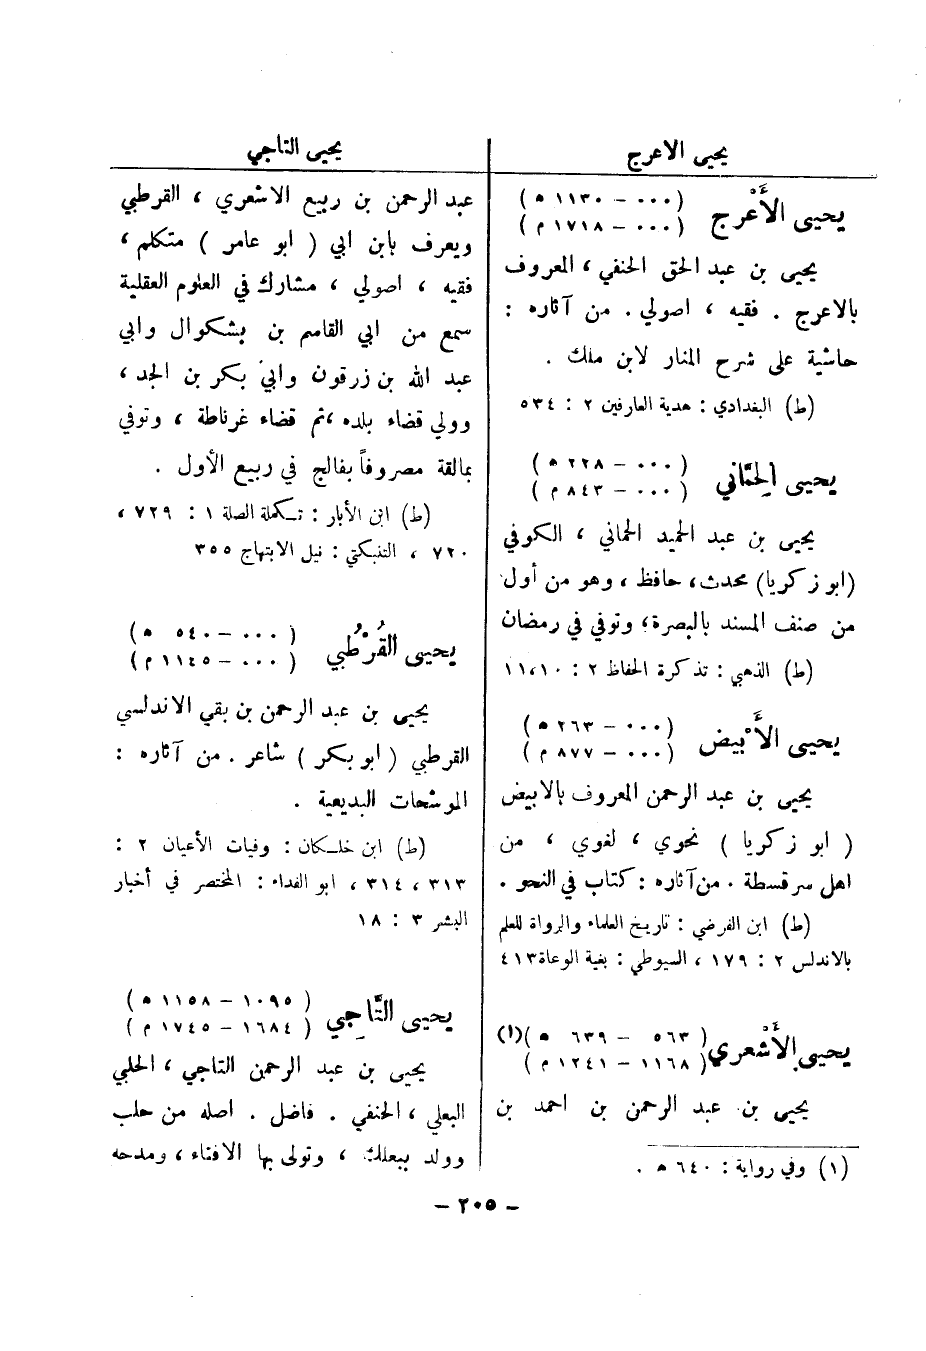 يحيى الاعرج
يحيى التاجي
يحيى الأَعْرج
( ٠٠٠ - ١١٣٠ ه )
( ٠٠٠ - ١٧١٨ م )
يحيى بن عبد الحق الحنفي ، المعروف
بالاعرج . فقيه ، اصولي . من آثاره :
حاشية على شرح المنار لابن ملك .
(ط) البغدادي : هدية العارفين ٢ : ٥٣٤
يحيى الحِمَّاني
( ٠٠٠ - ٢٢٨ ه )
( ٠٠٠ - ٨٤٣ م )
يحيى بن عبد الحميد الحماني ، الكوفي
(ابو زكريا) محدث، حافظ ، وهو من أول
من صنف المسند بالبصرة، وتوفي في رمضان
(ط) الذهبي : تذكرة الحفاظ ٢ : ١٠،١١
يحيى الأَبْيض
( ٠٠٠ - ٢٦٣ ه )
( ٠٠٠ - ٨٧٧ م )
يحيى بن عبد الرحمن المعروف بالابيض
( ابو زكريا ) نحوي ، لغوي ، من
اهل سرقسطة . من آثاره : كتاب في النحو .
(ط) ابن الفرضي : تاريخ العلماء والرواة للعلم
بالاندلس ٢ : ١٧٩ ، السيوطي : بغية الوعاة ٤١٣
يحيى الأَشْعري
( ٥٦٣ - ٦٣٩ ه )(١)
( ١١٦٨ - ١٢٤١ م )
يحيى بن عبد الرحمن بن احمد بن
(١) وفي رواية : ٦٤٠ ه .
عبد الرحمن بن ربيع الاشعري ، القرطبي
ويعرف بابن ابي ( ابو عامر ) متكلم ،
فقيه ، اصولي ، مشارك في العلوم العقلية
سمع من ابي القاسم بن بشكوال وابي
عبد الله بن زرقون وابي بكر بن الجد ،
وولي قضاء بلده ، ثم قضاء غرناطة ، وتوفي
بمالقة مصروفاً بفالج في ربيع الأول .
(ط) ابن الأبار : تكملة الصلة ١ : ٧٢٩ ،
٧٢٠ ، التنبكتي : نيل الابتهاج ٣٥٥
يحيى القُرْطُبي
( ٠٠٠ - ٥٤٠ ه )
( ٠٠٠ - ١١٤٥ م )
يحيى بن عبد الرحمن بن بقي الاندلسي
القرطبي ( ابو بكر ) شاعر . من آثاره :
الموشحات البديعية .
(ط) ابن خلكان : وفيات الأعيان ٢ :
٣١٣ ، ٣١٤ ، ابو الفداء : المختصر في أخبار
البشر ٣ : ١٨
يحيى التَّاجِي
( ١٠٩٥ - ١١٥٨ ه )
( ١٦٨٤ - ١٧٤٥ م )
يحيى بن عبد الرحمن التاجي ، الحلبي
البعلي ، الحنفي . فاضل . اصله من حلب
وولد ببعلبك ، وتولى بها الافتاء ، ومدحه
- ٢٠٥ -